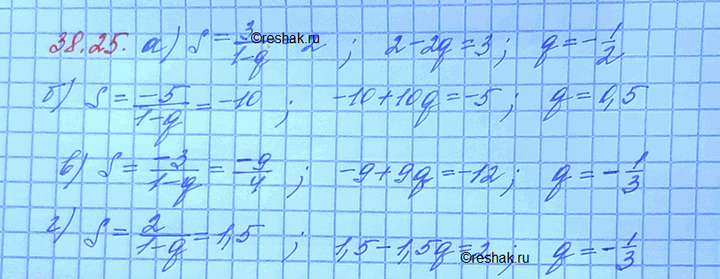 38.25. а) S = 3/(1-q) = 2 ; 2-2q=3; q=-1/2
б) S = -5/(1-q) = -10 ; -10+10q=-5; q=0,5
в) S = -3/(1-q) = -9/4 ; -9+9q=-12; q=-1/3
г) S = 2/(1-q) = 1,5 ; 1,5-1,5q=2; q=-1/3
©reshak.ru
©reshak.ru